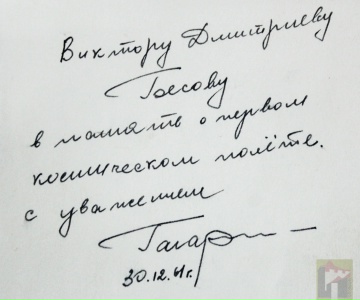 Виктору Дмитриеву
Бесову
в память о первом
космическом полёте.
с уважением
Гагарин
30.12.61г.